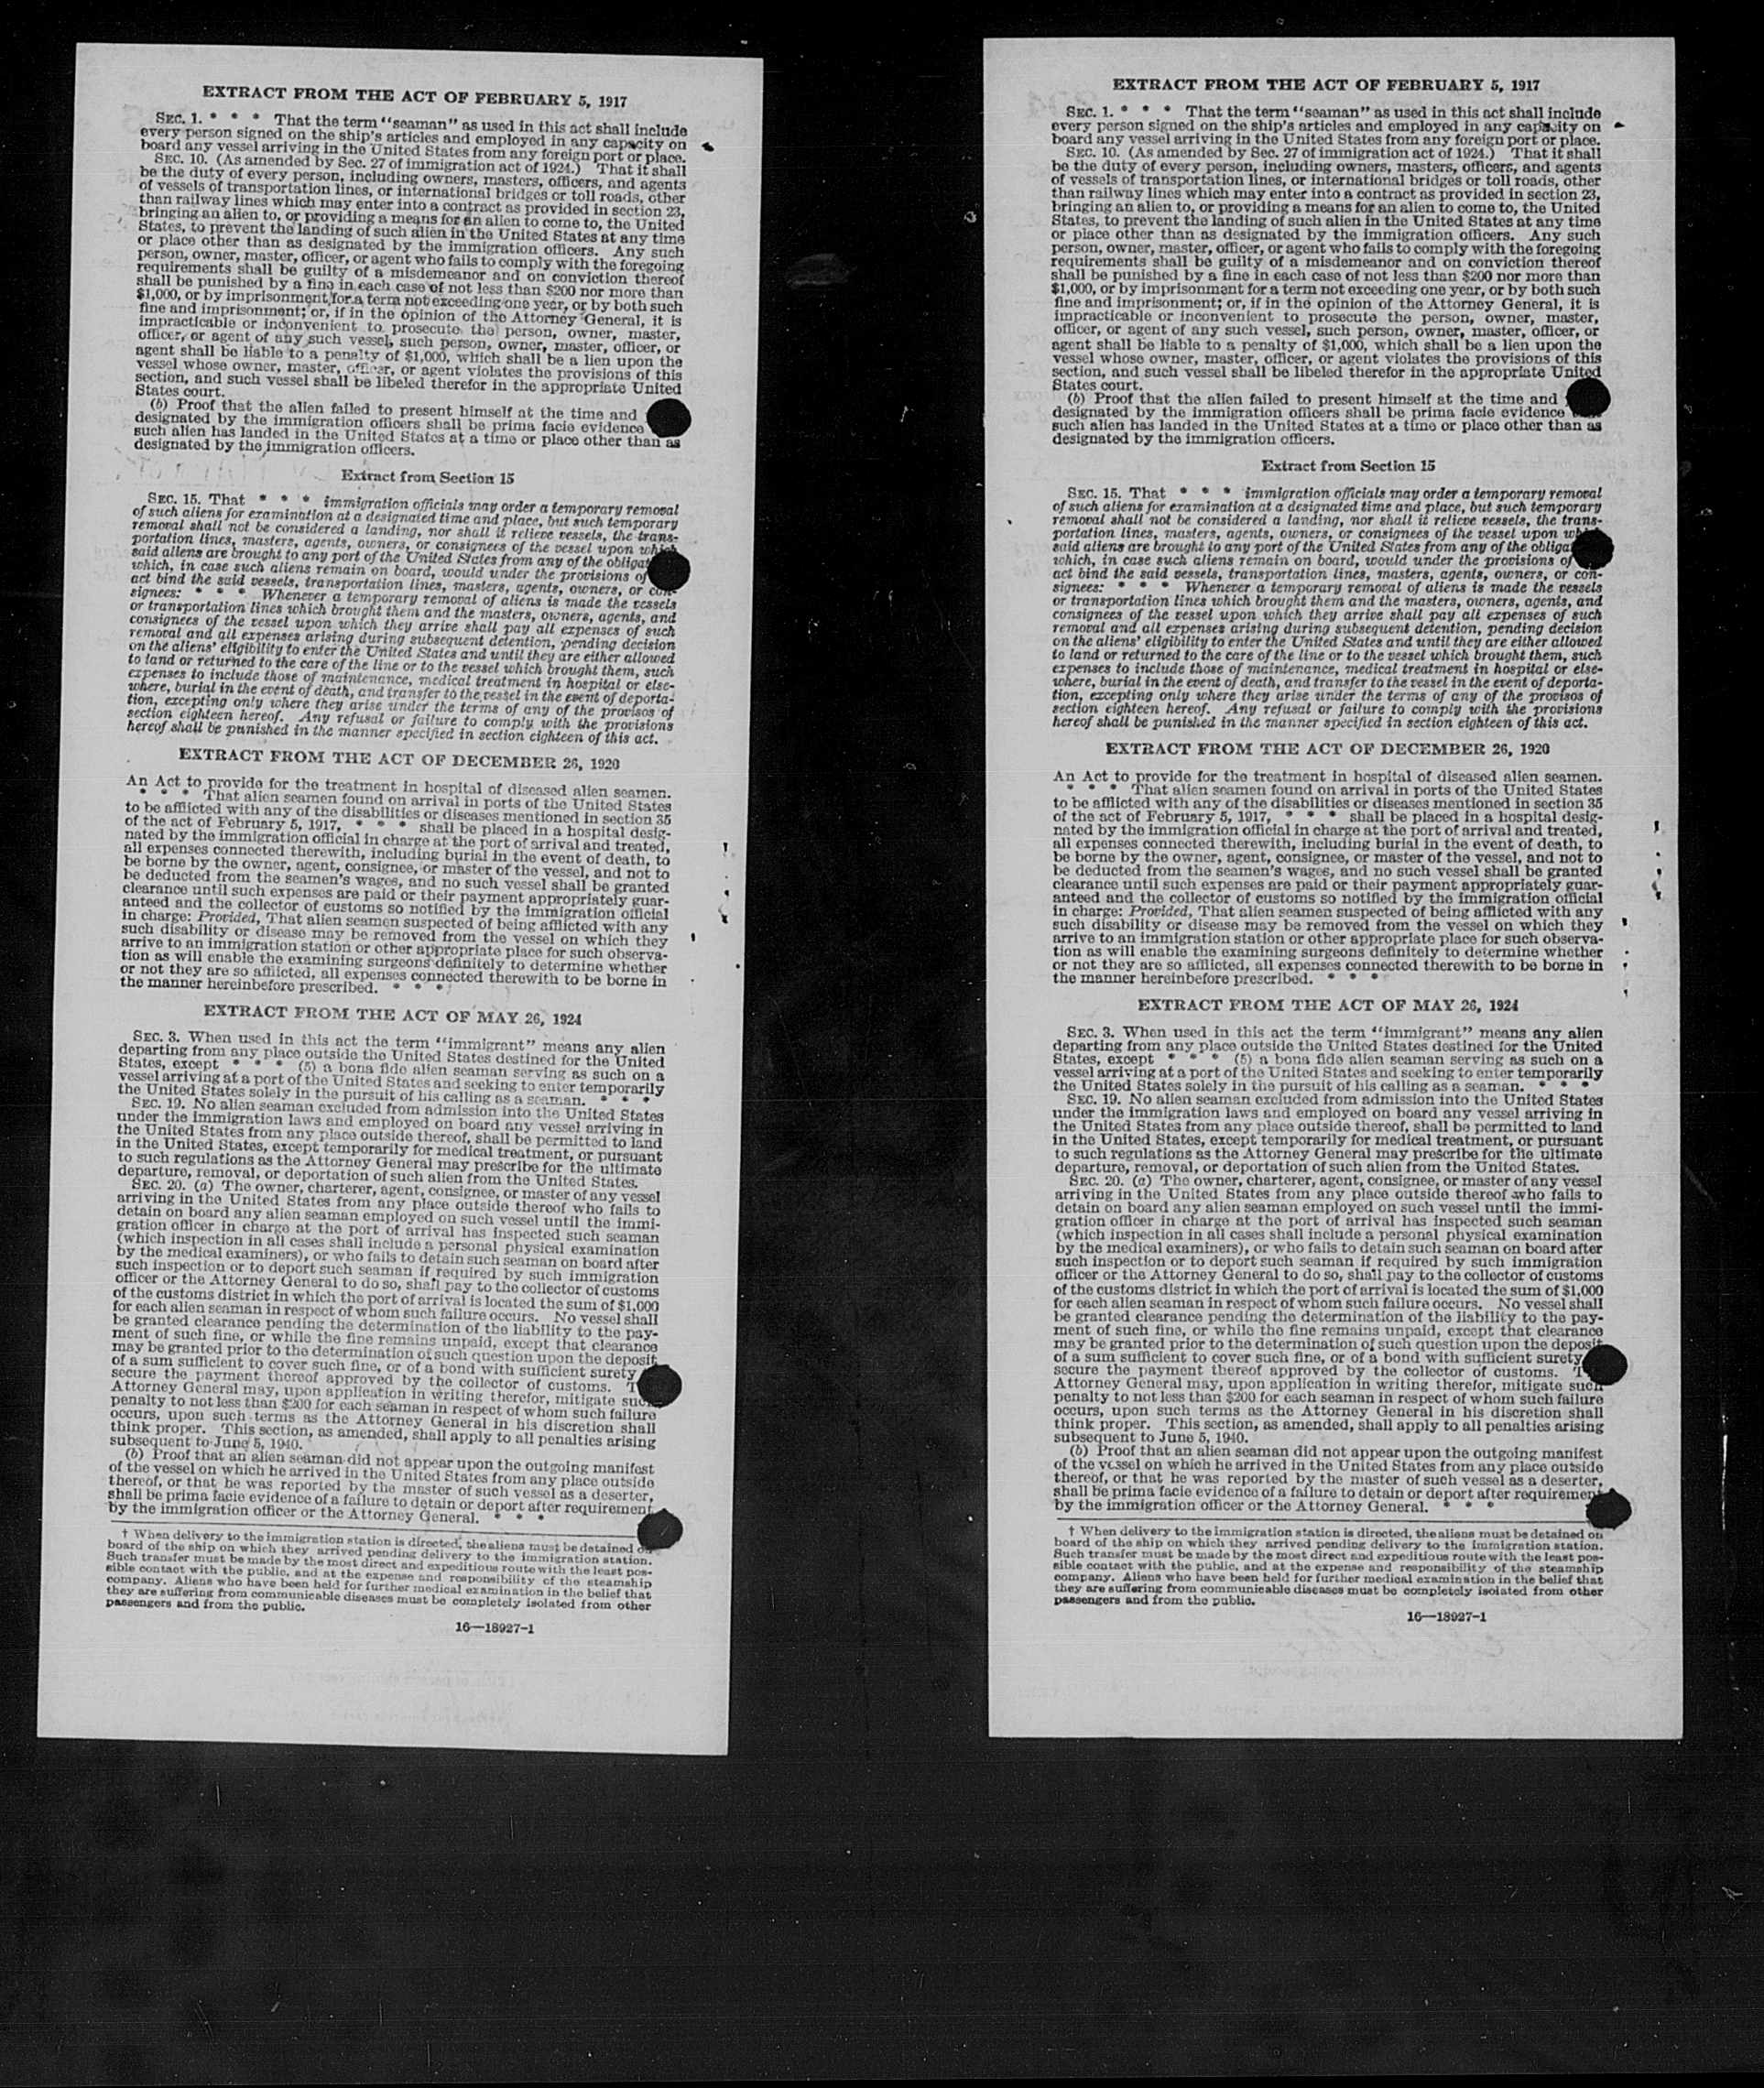 EXTRACT FROM THE ACT OF FEBRUARY 5, 1917
SEC. 1. * * * That the term "seaman" as used in this act shall include
every person signed on the ship's articles and employed in any capacity on
board any vessel arriving in the United States from any foreign port or place.
SEC. 10. (As amended by Sec. 27 of immigration act of 1924.) That it shall
be the duty of every person, including owners, masters, officers, and agents
of vessels of transportation lines, or international bridges or toll roads, other
than railway lines which may enter into a contract as provided in section 23,
bringing an alien to, or providing a means for an alien to come to, the United
States, to prevent the landing of such alien in the United States at any time
or place other than as designated by the immigration officers. Any such
person, owner, master, officer, or agent who fails to comply with the foregoing
requirements shall be guilty of a misdemeanor and on conviction thereof
shall be punished by a fine in each case of not less than $200 nor more than
$1,000, or by imprisonment for a term not exceeding one year, or by both such
fine and imprisonment; or, if in the opinion of the Attorney General, it is
impracticable or inconvenient to prosecute the person, owner, master,
officer, or agent of any such vessel, such person, owner, master, officer, or
agent shall be liable to a penalty of $1,000, which shall be a lien upon the
vessel whose owner, master, officer, or agent violates the provisions of this
section, and such vessel shall be libeled therefor in the appropriate United
States court.
(b) Proof that the alien failed to present himself at the time and
designated by the immigration officers shall be prima facie evidence
such alien has landed in the United States at a time or place other than as
designated by the immigration officers.
Extract from Section 15
SEC. 15. That * * * immigration officials may order a temporary removal
of such aliens for examination at a designated time and place, but such temporary
removal shall not be considered a landing, nor shall it relieve vessels, the trans-
portation lines, masters, agents, owners, or consignees of the vessel upon which
said aliens are brought to any port of the United States from any of the obligat
which, in case such aliens remain on board, would under the provisions of
act bind the said vessels, transportation lines, masters, agents, owners, or con-
signees: * * * Whenever a temporary removal of aliens is made the vessels
or transportation lines which brought them and the masters, owners, agents, and
consignees of the vessel upon which they arrive shall pay all expenses of such
removal and all expenses arising during subsequent detention, pending decision
on the aliens' eligibility to enter the United States and until they are either allowed
to land or returned to the care of the line or to the vessel which brought them, such
expenses to include those of maintenance, medical treatment in hospital or else-
where, burial in the event of death, and transfer to the vessel in the event of deporta-
tion, excepting only where they arise under the terms of any of the provisos of
section eighteen hereof. Any refusal or failure to comply with the provisions
hereof shall be punished in the manner specified in section eighteen of this act.
EXTRACT FROM THE ACT OF DECEMBER 26, 1920
An Act to provide for the treatment in hospital of diseased alien seamen.
* * * That alien seamen found on arrival in ports of the United States
to be afflicted with any of the disabilities or diseases mentioned in section 35
of the act of February 5, 1917, * * * shall be placed in a hospital desig-
nated by the immigration official in charge at the port of arrival and treated,
all expenses connected therewith, including burial in the event of death, to
be borne by the owner, agent, consignee, or master of the vessel, and not to
be deducted from the seamen's wages, and no such vessel shall be granted
clearance until such expenses are paid or their payment appropriately guar-
anteed and the collector of customs so notified by the immigration official
in charge: Provided, That alien seamen suspected of being afflicted with any
such disability or disease may be removed from the vessel on which they
arrive to an immigration station or other appropriate place for such observa-
tion as will enable the examining surgeons definitely to determine whether
or not they are so afflicted, all expenses connected therewith to be borne in
the manner hereinbefore prescribed. * * *
EXTRACT FROM THE ACT OF MAY 26, 1924
SEC. 3. When used in this act the term "immigrant" means any alien
departing from any place outside the United States destined for the United
States, except * * * (5) a bona fide alien seaman serving as such on a
vessel arriving at a port of the United States and seeking to enter temporarily
the United States solely in the pursuit of his calling as a seaman. * * *
SEC. 19. No alien seaman excluded from admission into the United States
under the immigration laws and employed on board any vessel arriving in
the United States from any place outside thereof, shall be permitted to land
in the United States, except temporarily for medical treatment, or pursuant
to such regulations as the Attorney General may prescribe for the ultimate
departure, removal, or deportation of such alien from the United States.
SEC. 20. (a) The owner, charterer, agent, consignee, or master of any vessel
arriving in the United States from any place outside thereof who fails to
detain on board any alien seaman employed on such vessel until the immi-
gration officer in charge at the port of arrival has inspected such seaman
(which inspection in all cases shall include a personal physical examination
by the medical examiners), or who fails to detain such seaman on board after
such inspection or to deport such seaman if required by such immigration
officer or the Attorney General to do so, shall pay to the collector of customs
of the customs district in which the port of arrival is located the sum of $1,000
for each alien seaman in respect of whom such failure occurs. No vessel shall
be granted clearance pending the determination of the liability to the pay-
ment of such fine, or while the fine remains unpaid, except that clearance
may be granted prior to the determination of such question upon the deposit
of a sum sufficient to cover such fine, or of a bond with sufficient surety
secure the payment thereof approved by the collector of customs. T
Attorney General may, upon application in writing therefor, mitigate such
penalty to not less than $200 for each seaman in respect of whom such failure
occurs, upon such terms as the Attorney General in his discretion shall
think proper. This section, as amended, shall apply to all penalties arising
subsequent to June 5, 1940.
(b) Proof that an alien seaman did not appear upon the outgoing manifest
of the vessel on which he arrived in the United States from any place outside
thereof, or that he was reported by the master of such vessel as a deserter,
shall be prima facie evidence of a failure to detain or deport after requirement
by the immigration officer or the Attorney General. * * *
† When delivery to the immigration station is directed, the aliens must be detained on
board of the ship on which they arrived pending delivery to the immigration station.
Such transfer must be made by the most direct and expeditious route with the least pos-
sible contact with the public, and at the expense and responsibility of the steamship
company. Aliens who have been held for further medical examination in the belief that
they are suffering from communicable diseases must be completely isolated from other
passengers and from the public.
16—18927-1
EXTRACT FROM THE ACT OF FEBRUARY 5, 1917
SEC. 1. * * * That the term "seaman" as used in this act shall include
every person signed on the ship's articles and employed in any capacity on
board any vessel arriving in the United States from any foreign port or place.
SEC. 10. (As amended by Sec. 27 of immigration act of 1924.) That it shall
be the duty of every person, including owners, masters, officers, and agents
of vessels of transportation lines, or international bridges or toll roads, other
than railway lines which may enter into a contract as provided in section 23,
bringing an alien to, or providing a means for an alien to come to, the United
States, to prevent the landing of such alien in the United States at any time
or place other than as designated by the immigration officers. Any such
person, owner, master, officer, or agent who fails to comply with the foregoing
requirements shall be guilty of a misdemeanor and on conviction thereof
shall be punished by a fine in each case of not less than $200 nor more than
$1,000, or by imprisonment for a term not exceeding one year, or by both such
fine and imprisonment; or, if in the opinion of the Attorney General, it is
impracticable or inconvenient to prosecute the person, owner, master,
officer, or agent of any such vessel, such person, owner, master, officer, or
agent shall be liable to a penalty of $1,000, which shall be a lien upon the
vessel whose owner, master, officer, or agent violates the provisions of this
section, and such vessel shall be libeled therefor in the appropriate United
States court.
(b) Proof that the alien failed to present himself at the time and
designated by the immigration officers shall be prima facie evidence
such alien has landed in the United States at a time or place other than as
designated by the immigration officers.
Extract from Section 15
SEC. 15. That * * * immigration officials may order a temporary removal
of such aliens for examination at a designated time and place, but such temporary
removal shall not be considered a landing, nor shall it relieve vessels, the trans-
portation lines, masters, agents, owners, or consignees of the vessel upon wh
said aliens are brought to any port of the United States from any of the obliga
which, in case such aliens remain on board, would under the provisions of
act bind the said vessels, transportation lines, masters, agents, owners, or con-
signees: * * * Whenever a temporary removal of aliens is made the vessels
or transportation lines which brought them and the masters, owners, agents, and
consignees of the vessel upon which they arrive shall pay all expenses of such
removal and all expenses arising during subsequent detention, pending decision
on the aliens' eligibility to enter the United States and until they are either allowed
to land or returned to the care of the line or to the vessel which brought them, such
expenses to include those of maintenance, medical treatment in hospital or else-
where, burial in the event of death, and transfer to the vessel in the event of deporta-
tion, excepting only where they arise under the terms of any of the provisos of
section eighteen hereof. Any refusal or failure to comply with the provisions
hereof shall be punished in the manner specified in section eighteen of this act.
EXTRACT FROM THE ACT OF DECEMBER 26, 1920
An Act to provide for the treatment in hospital of diseased alien seamen.
* * * That alien seamen found on arrival in ports of the United States
to be afflicted with any of the disabilities or diseases mentioned in section 35
of the act of February 5, 1917, * * * shall be placed in a hospital desig-
nated by the immigration official in charge at the port of arrival and treated,
all expenses connected therewith, including burial in the event of death, to
be borne by the owner, agent, consignee, or master of the vessel, and not to
be deducted from the seamen's wages, and no such vessel shall be granted
clearance until such expenses are paid or their payment appropriately guar-
anteed and the collector of customs so notified by the immigration official
in charge: Provided, That alien seamen suspected of being afflicted with any
such disability or disease may be removed from the vessel on which they
arrive to an immigration station or other appropriate place for such observa-
tion as will enable the examining surgeons definitely to determine whether
or not they are so afflicted, all expenses connected therewith to be borne in
the manner hereinbefore prescribed. * * *
EXTRACT FROM THE ACT OF MAY 26, 1924
SEC. 3. When used in this act the term "immigrant" means any alien
departing from any place outside the United States destined for the United
States, except * * * (5) a bona fide alien seaman serving as such on a
vessel arriving at a port of the United States and seeking to enter temporarily
the United States solely in the pursuit of his calling as a seaman. * * *
SEC. 19. No alien seaman excluded from admission into the United States
under the immigration laws and employed on board any vessel arriving in
the United States from any place outside thereof, shall be permitted to land
in the United States, except temporarily for medical treatment, or pursuant
to such regulations as the Attorney General may prescribe for the ultimate
departure, removal, or deportation of such alien from the United States.
SEC. 20. (a) The owner, charterer, agent, consignee, or master of any vessel
arriving in the United States from any place outside thereof who fails to
detain on board any alien seaman employed on such vessel until the immi-
gration officer in charge at the port of arrival has inspected such seaman
(which inspection in all cases shall include a personal physical examination
by the medical examiners), or who fails to detain such seaman on board after
such inspection or to deport such seaman if required by such immigration
officer or the Attorney General to do so, shall pay to the collector of customs
of the customs district in which the port of arrival is located the sum of $1,000
for each alien seaman in respect of whom such failure occurs. No vessel shall
be granted clearance pending the determination of the liability to the pay-
ment of such fine, or while the fine remains unpaid, except that clearance
may be granted prior to the determination of such question upon the deposit
of a sum sufficient to cover such fine, or of a bond with sufficient surety
secure the payment thereof approved by the collector of customs. T
Attorney General may, upon application in writing therefor, mitigate such
penalty to not less than $200 for each seaman in respect of whom such failure
occurs, upon such terms as the Attorney General in his discretion shall
think proper. This section, as amended, shall apply to all penalties arising
subsequent to June 5, 1940.
(b) Proof that an alien seaman did not appear upon the outgoing manifest
of the vessel on which he arrived in the United States from any place outside
thereof, or that he was reported by the master of such vessel as a deserter,
shall be prima facie evidence of a failure to detain or deport after requirement
by the immigration officer or the Attorney General. * * *
† When delivery to the immigration station is directed, the aliens must be detained on
board of the ship on which they arrived pending delivery to the immigration station.
Such transfer must be made by the most direct and expeditious route with the least pos-
sible contact with the public, and at the expense and responsibility of the steamship
company. Aliens who have been held for further medical examination in the belief that
they are suffering from communicable diseases must be completely isolated from other
passengers and from the public.
16—18927-1